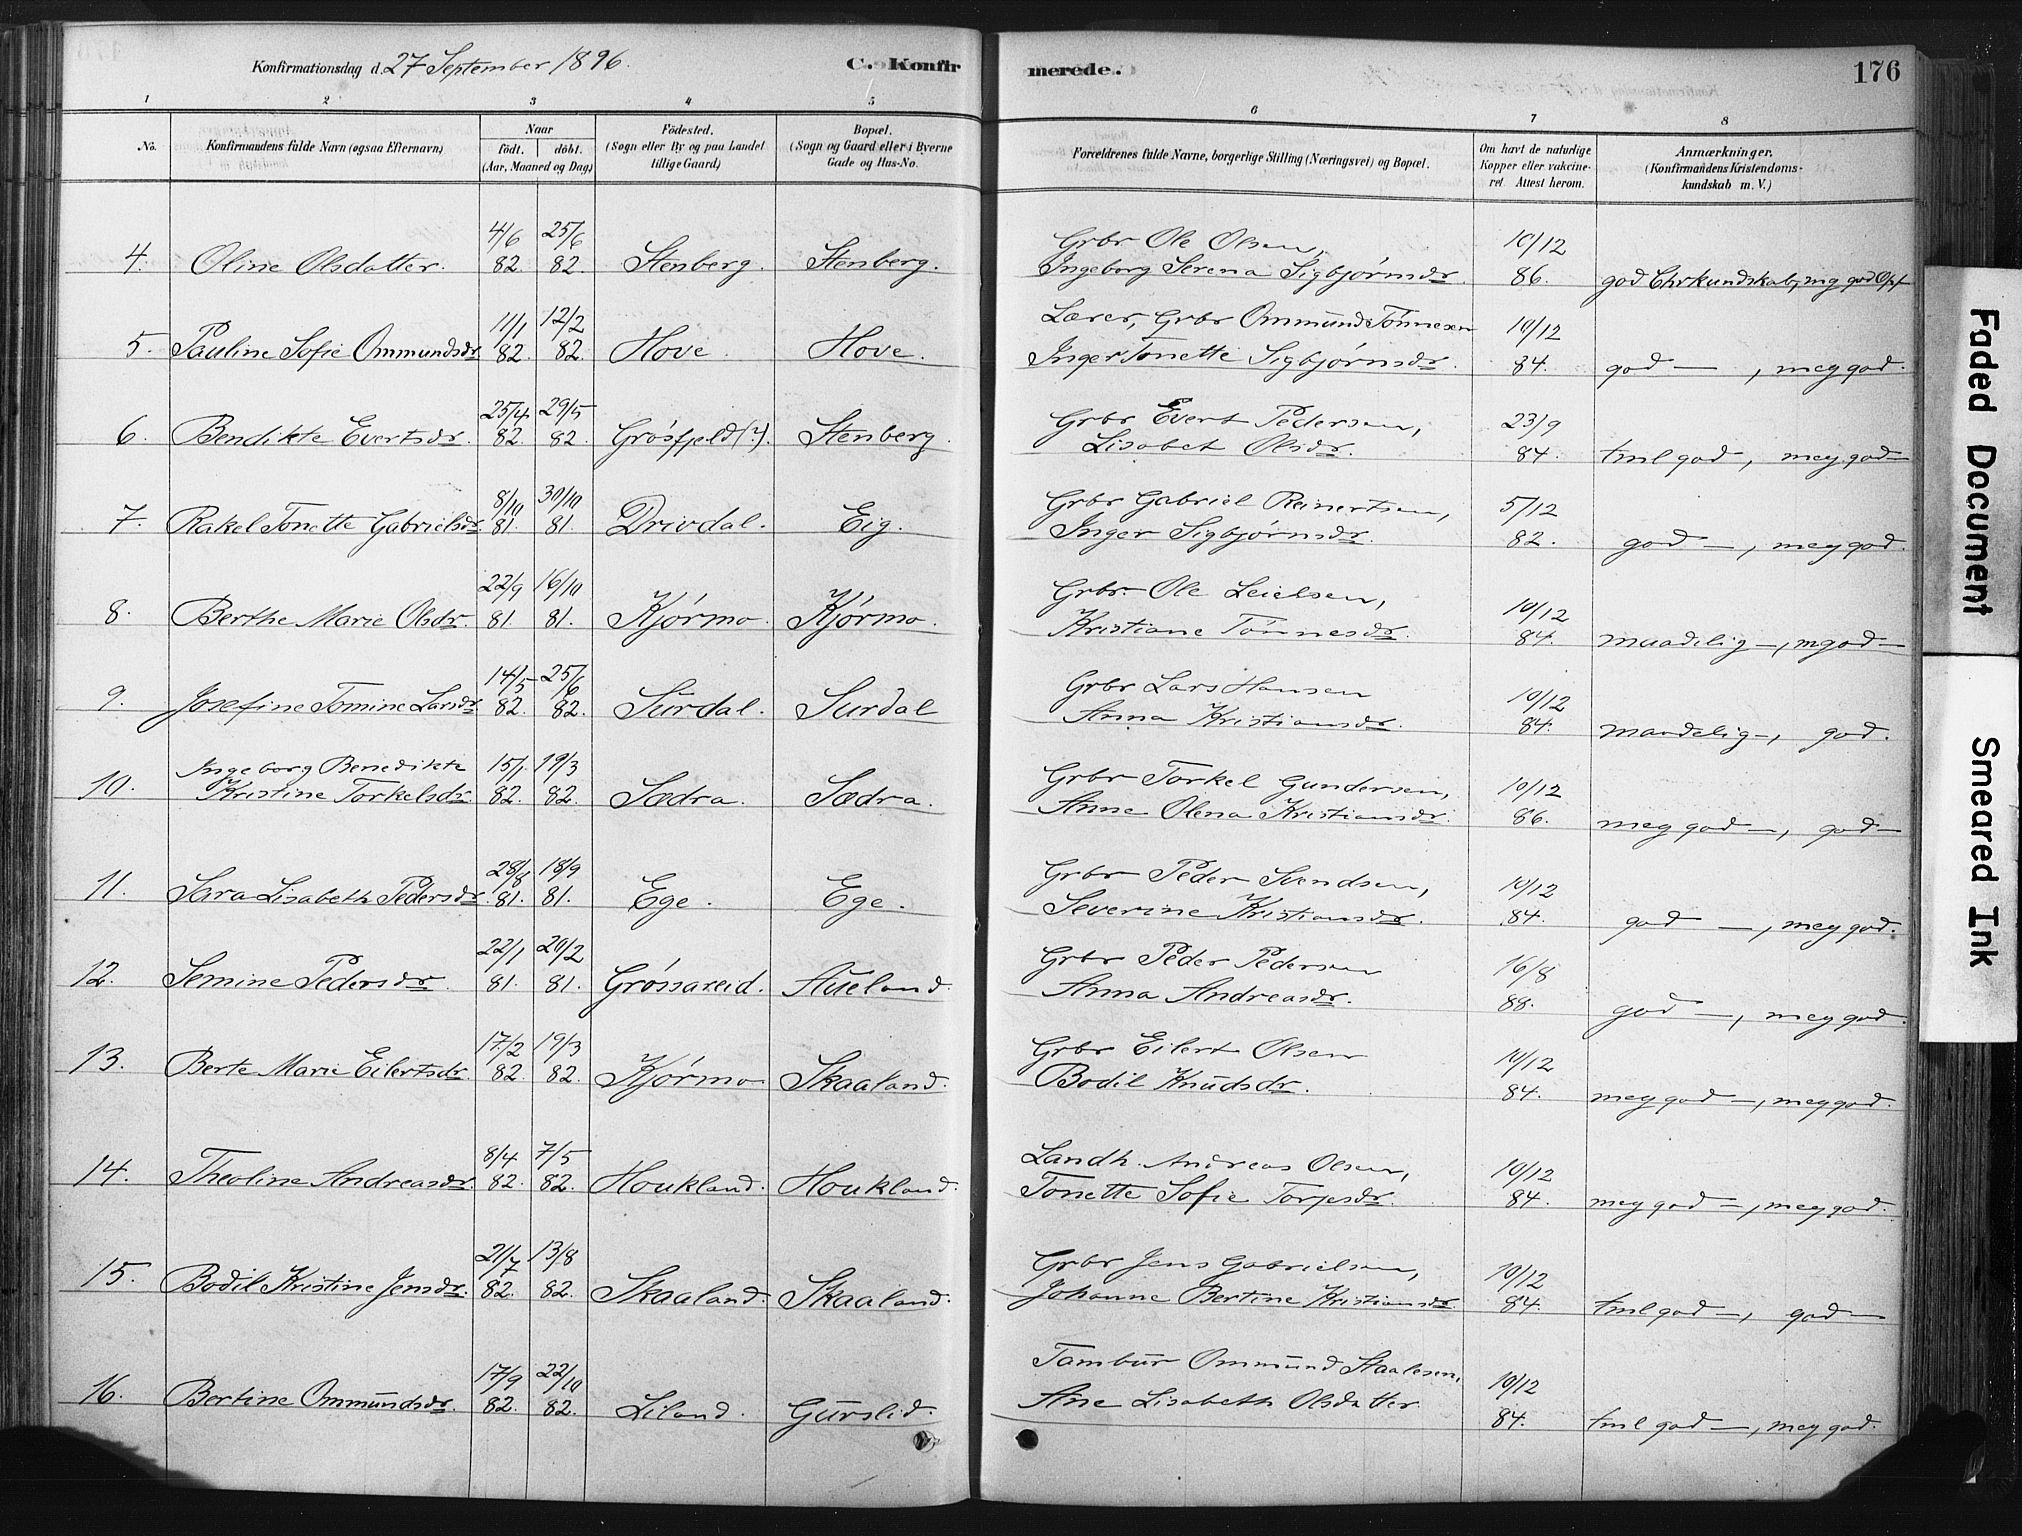 Konfirmationsdag d. 27 September 1896.
C. Konfirmerede.
176
1 2 3 4 5 6 7 8
No.
Konfirmandens fulde Navn (ogsaa Efternavn)
Naar
födt. döbt.
(Aar, Maaned og Dag)
Födested.
(Sogn eller By og paa Landet tillige Gaard)
Bopæl.
(Sogn og Gaard eller i Byerne Gade og Hus-No.
Forældrenes fulde Navne, borgerlige Stilling (Næringsvei) og Bopæl.
Om havt de naturlige Kopper eller vakcineret. Attest herom.
Anmærkninger.
(Konfirmandens Kristendomskundskab m. V.)
4/6 25/6 Grbr Ole Olsen, 10/12
4. Oline Olsdatter. 82. 82. Stenberg. Stenberg. Ingeborg Serena Sigbjørnsdr. 86. god Chrkundskab, mg god Opf
11/1 12/2 Lærer, Grbr Ommund Tönnesen 10/12
5. Pauline Sofie Ommundsdr 82. 82. Hove. Hove. Inger Tonette Sigbjörnsdr. 84. god —, meg god.
25/4 29/5 Grbr Evert Pedersen, 23/9
6. Bendikte Evertsdr. 82. 82. Grösfjeld (?). Stenberg. Lisabet Olsdr. 84. tml god —, meg god —
8/10 30/10 Grbr Gabriel Reinertsen, 5/12
7. Rakel Tonette Gabrielsdr. 81. 81. Drivdal. Eig. Inger Sigbjörnsdr. 82. god —, meg god.
22/9 16/10 Grbr. Ole Leielsen, 10/12
8. Berthe Marie Olsdr. 81. 81. Kjörmo. Kjörmo. Kristiane Tönnesdr. 84. maadelig —, mgod —
14/5 25/6 Grbr Lars Hansen 10/12
9. Josefine Tomine Larsdr. 82. 82. Surdal. Surdal Anna Kristiansdr. 84. maadelig —, god.
Ingeborg Benedikte 15/1 19/3 Grbr Torkel Gundersen, 10/12
10. Kristine Torkelsdr. 82. 82. Sædra. Sædra. Anne Olena Kristiansdr. 86. meg god —, god —
28/8 18/9 Grbr Peder Svendsen, 10/12
11. Sara Lisabeth Pedersdr. 81. 81. Ege. Ege. Severine Kristiansdr. 84. god —, meg god.
22/1 20/2 Grbr Peder Pedersen 16/8
12. Semine Pedersdr. 81. 81. Grössareid. Aueland. Anna Andreasdr. 88. god —, meg god.
17/2 19/3 Grbr Eilert Olsen 10/12
13. Berte Marie Eilertsdr. 82. 82. Kjörmo Skaaland. Bodil Knudsdr. 84. meg god —, meg god.
8/4 7/5 Landh. Andreas Olsen, 10/12
14. Theoline Andreasdr. 82. 82. Houkland. Houkland. Tonette Sofie Torjesdr. 84. meg god —, meg god.
21/7 13/8 Grbr Jens Gabrielsen, 10/12
15. Bodil Kristine Jensdr. 82. 82. Skaaland. Skaaland. Johanne Bertine Kristiansdr 84. tml god —, god —
17/9 22/10 Tambur Ommund Staalesen, 10/12
16. Bertine Ommundsdr. 82. 82. Liland. Gurslid. Ane Lisabeth Olsdatter 84. tml god —, meg god.
Faded Document
Smeared Ink